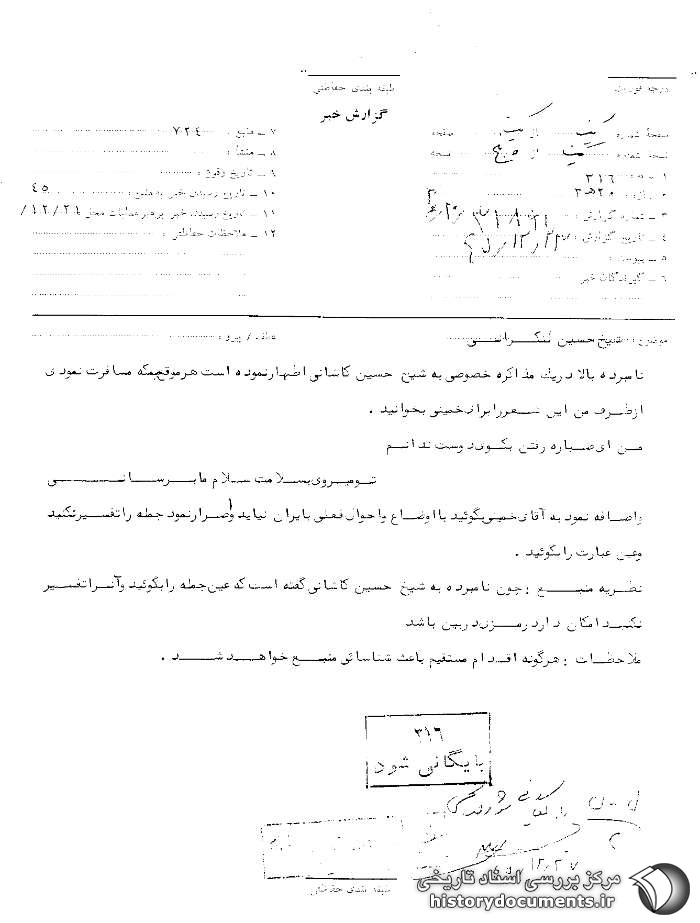 درجه فوریت
طبقه بندی حفاظتی
گزارش خبر
صفحه شماره یک از یک صفحه
نسخه شماره از پنج نسخه
۱ – به : ۳۱۶
۲ – از : ۲۰ ه ۳
۳ – شماره گزارش :
۴ – تاریخ گزارش : ۴۵/۱۲/۲۷
۵ – پیوست :
۶ – گیرندگان خبر
۷ – منبع : ۷۲۴
۸ – منشأ :
۹ – تاریخ وقوع :
۱۰ – تاریخ رسیدن خبر به منبع : ۴۵
۱۱ – تاریخ رسیدن خبر به رهبر عملیات محل ۱۲/۲۱/
۱۲ – ملاحظات حفاظتی :
موضوع : شیخ حسین لنکرانی
عطف / پیرو :
نامبرده بالا در یک مذاکره خصوصی به شیخ حسین کاشانی اظهار نموده است هر موقعیکه مسافرت نمودی
از طرف من این شعر را برای خمینی بخوانید .
من ای صبا ره رفتن بکوی دوست ندانم
تو میروی بسلامت سلام ما برسانی
و اضافه نمود به آقای خمینی بگوئید با اوضاع و احوال فعلی بایران نیاید و اصرار نمود جمله را تفسیر نکنید
و عین عبارت را بگوئید .
نظریه منبع : چون نامبرده به شیخ حسین کاشانی گفته است که عین جمله را بگوئید و آنرا تفسیر
نکنید امکان دارد رمزی در بین باشد
ملاحظات : هرگونه اقدام مستقیم باعث شناسائی منبع خواهد شد .
۳۱۶
بایگانی شود
۱۲/۲۷
طبقه بندی حفاظتی
مرکز بررسی اسناد تاریخی
historydocuments.ir